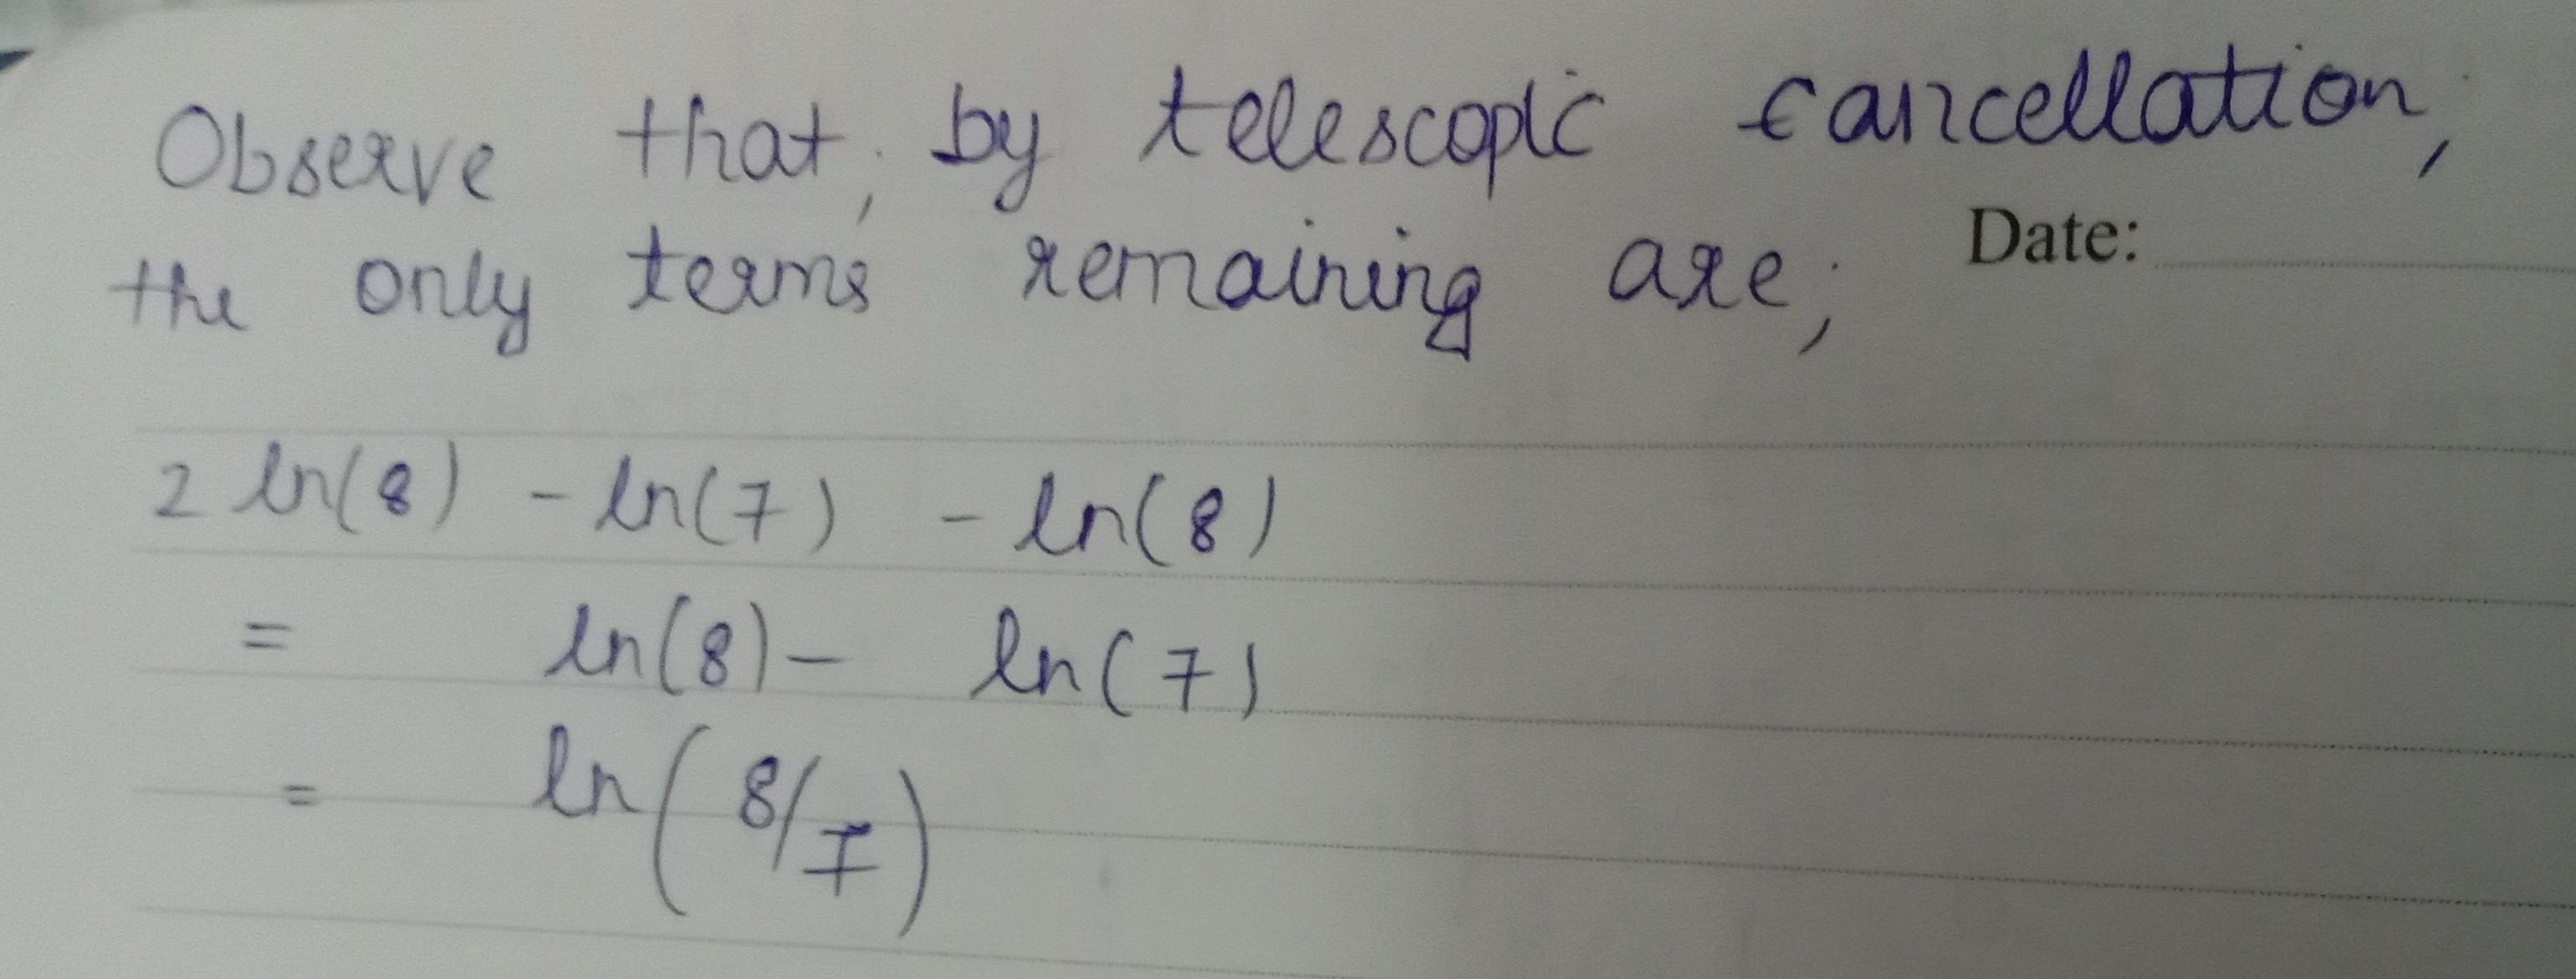 Observe that, by telescopic cancellation,
the only terms remaining are,
Date:
2 ln(8) - ln(7) - ln(8)
= ln(8) - ln(7)
= ln(8/7)